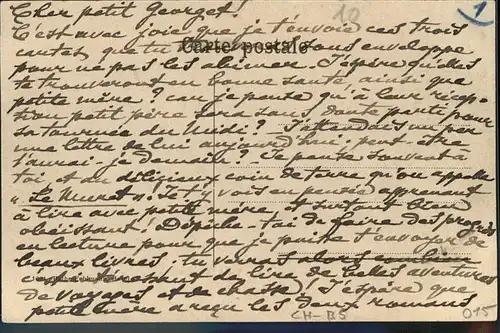 Cher petit Georget!
C'est avec joie que je t'envoie ces trois
cartes, que tu sous enveloppe
Carte postale
pour ne pas les abîmer. J'espère qu'elles
te trouveront en bonne santé, ainsi que
petite mère? car je pense qu'à leur récep-
tion petit père sera sans doute parti pour
sa tournée du Midi? J'attendais un peu
une lettre de lui aujourd'hui, peut-être
l'aurai-je demain? Je pense souvent à
toi et au délicieux coin de terre qu'on appelle
"Le Muret"! Je t'y vois en pensée apprenant
à lire avec petite mère, et surtout bien
obéissant! Dépêche-toi de faire des progrès
en lecture pour que je puisse t'envoyer de
beaux livres, tu verras alors combien
c'est intéressant de lire de belles aventures
de voyages et de chasse! J'espère que
petite mère a reçu les deux romans
10
1
CH-BS
015